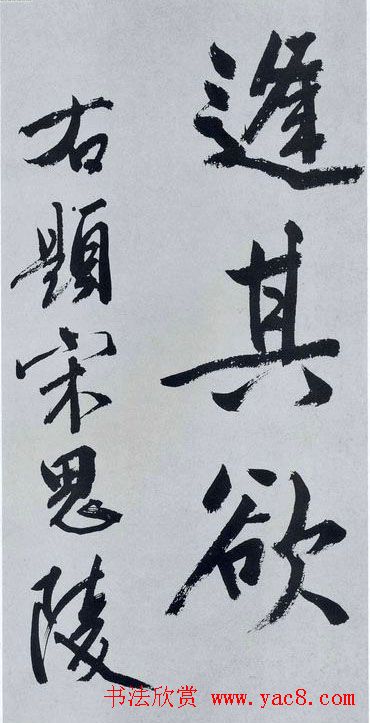 逢其欲
右題宋思陵
书法欣赏 www.yac8.com